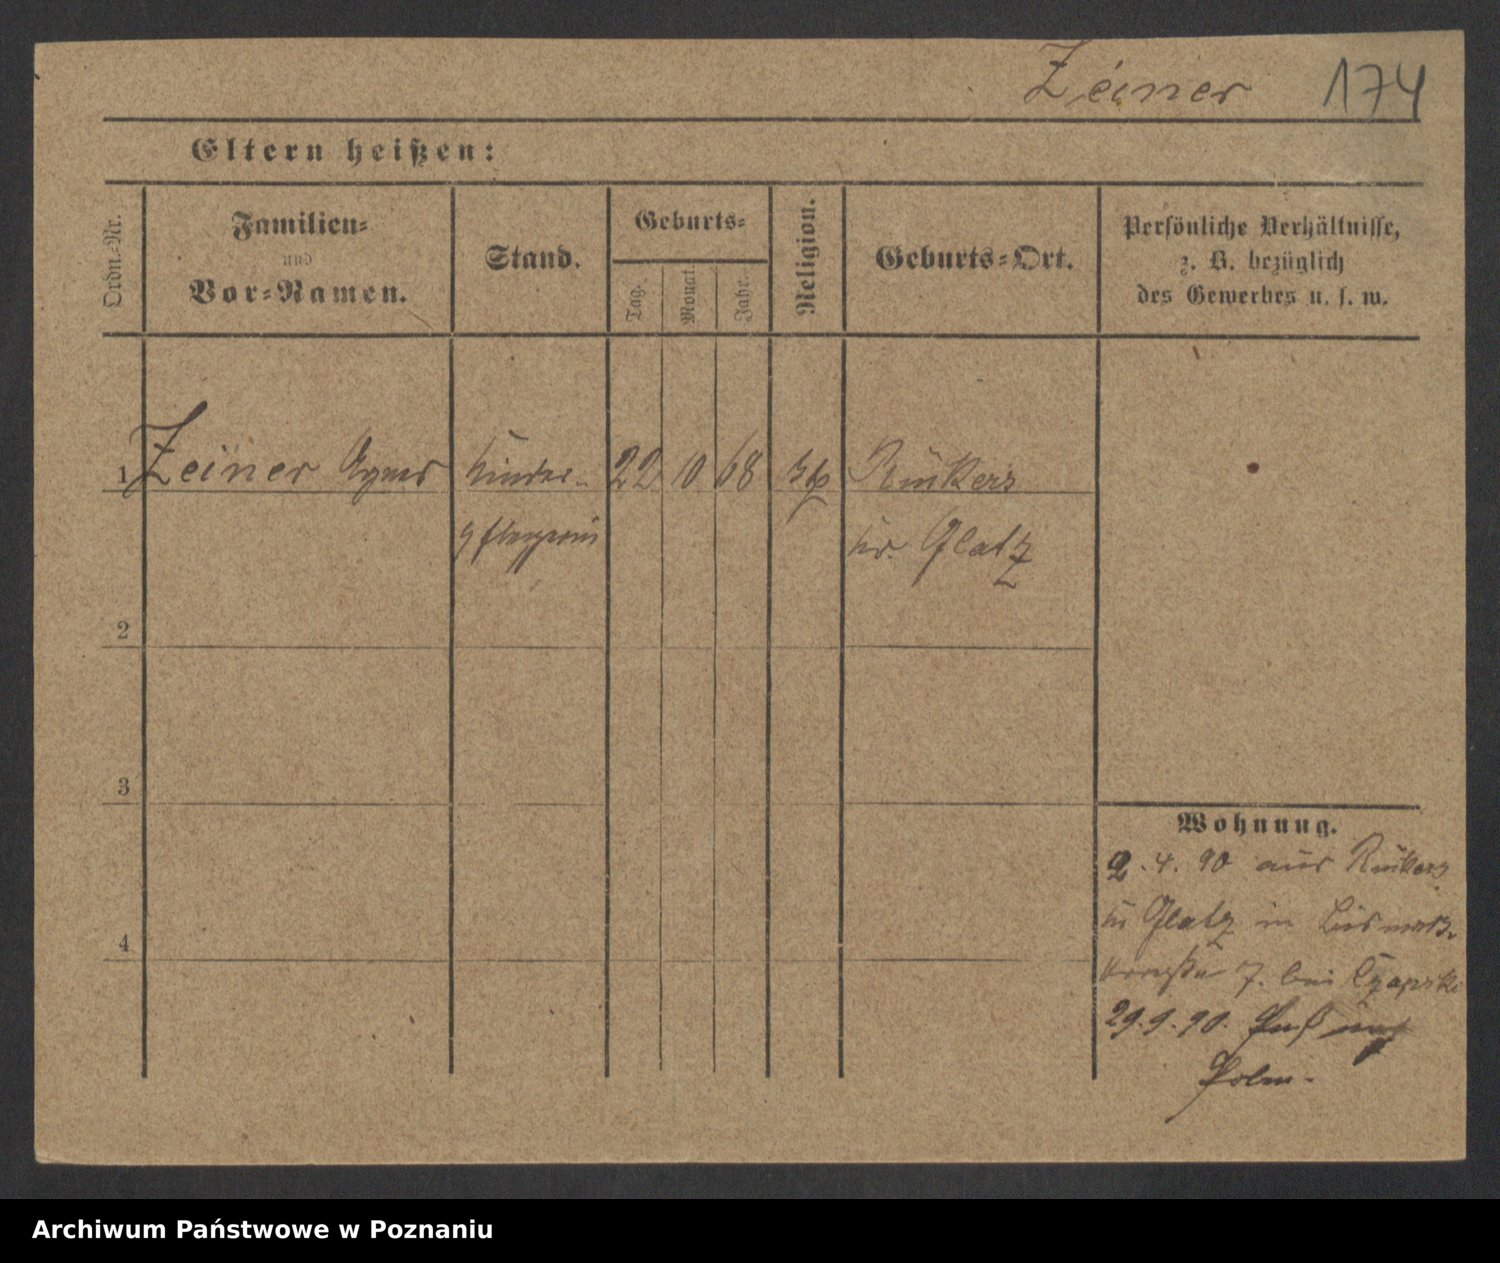 Zeiner 174
Eltern heißen:
Ordn.-Nr.
Familien-
und
Vor-Namen.
Stand.
Geburts-
Tag.
Monat.
Jahr.
Religion.
Geburts-Ort.
Persönliche Verhältnisse,
z. B. bezüglich
des Gewerbes u. s. w.
1 Zeiner Agnes Kinder- 22 10 68 Rückers
pflegerin Kr. Glatz
2
3
4
Wohnung.
2.4.90 aus Rückers
Kr Glatz in Bismarck-
straße 7. bei Czapski
29.9.90. Paß nach
Polen.
Archiwum Państwowe w Poznaniu